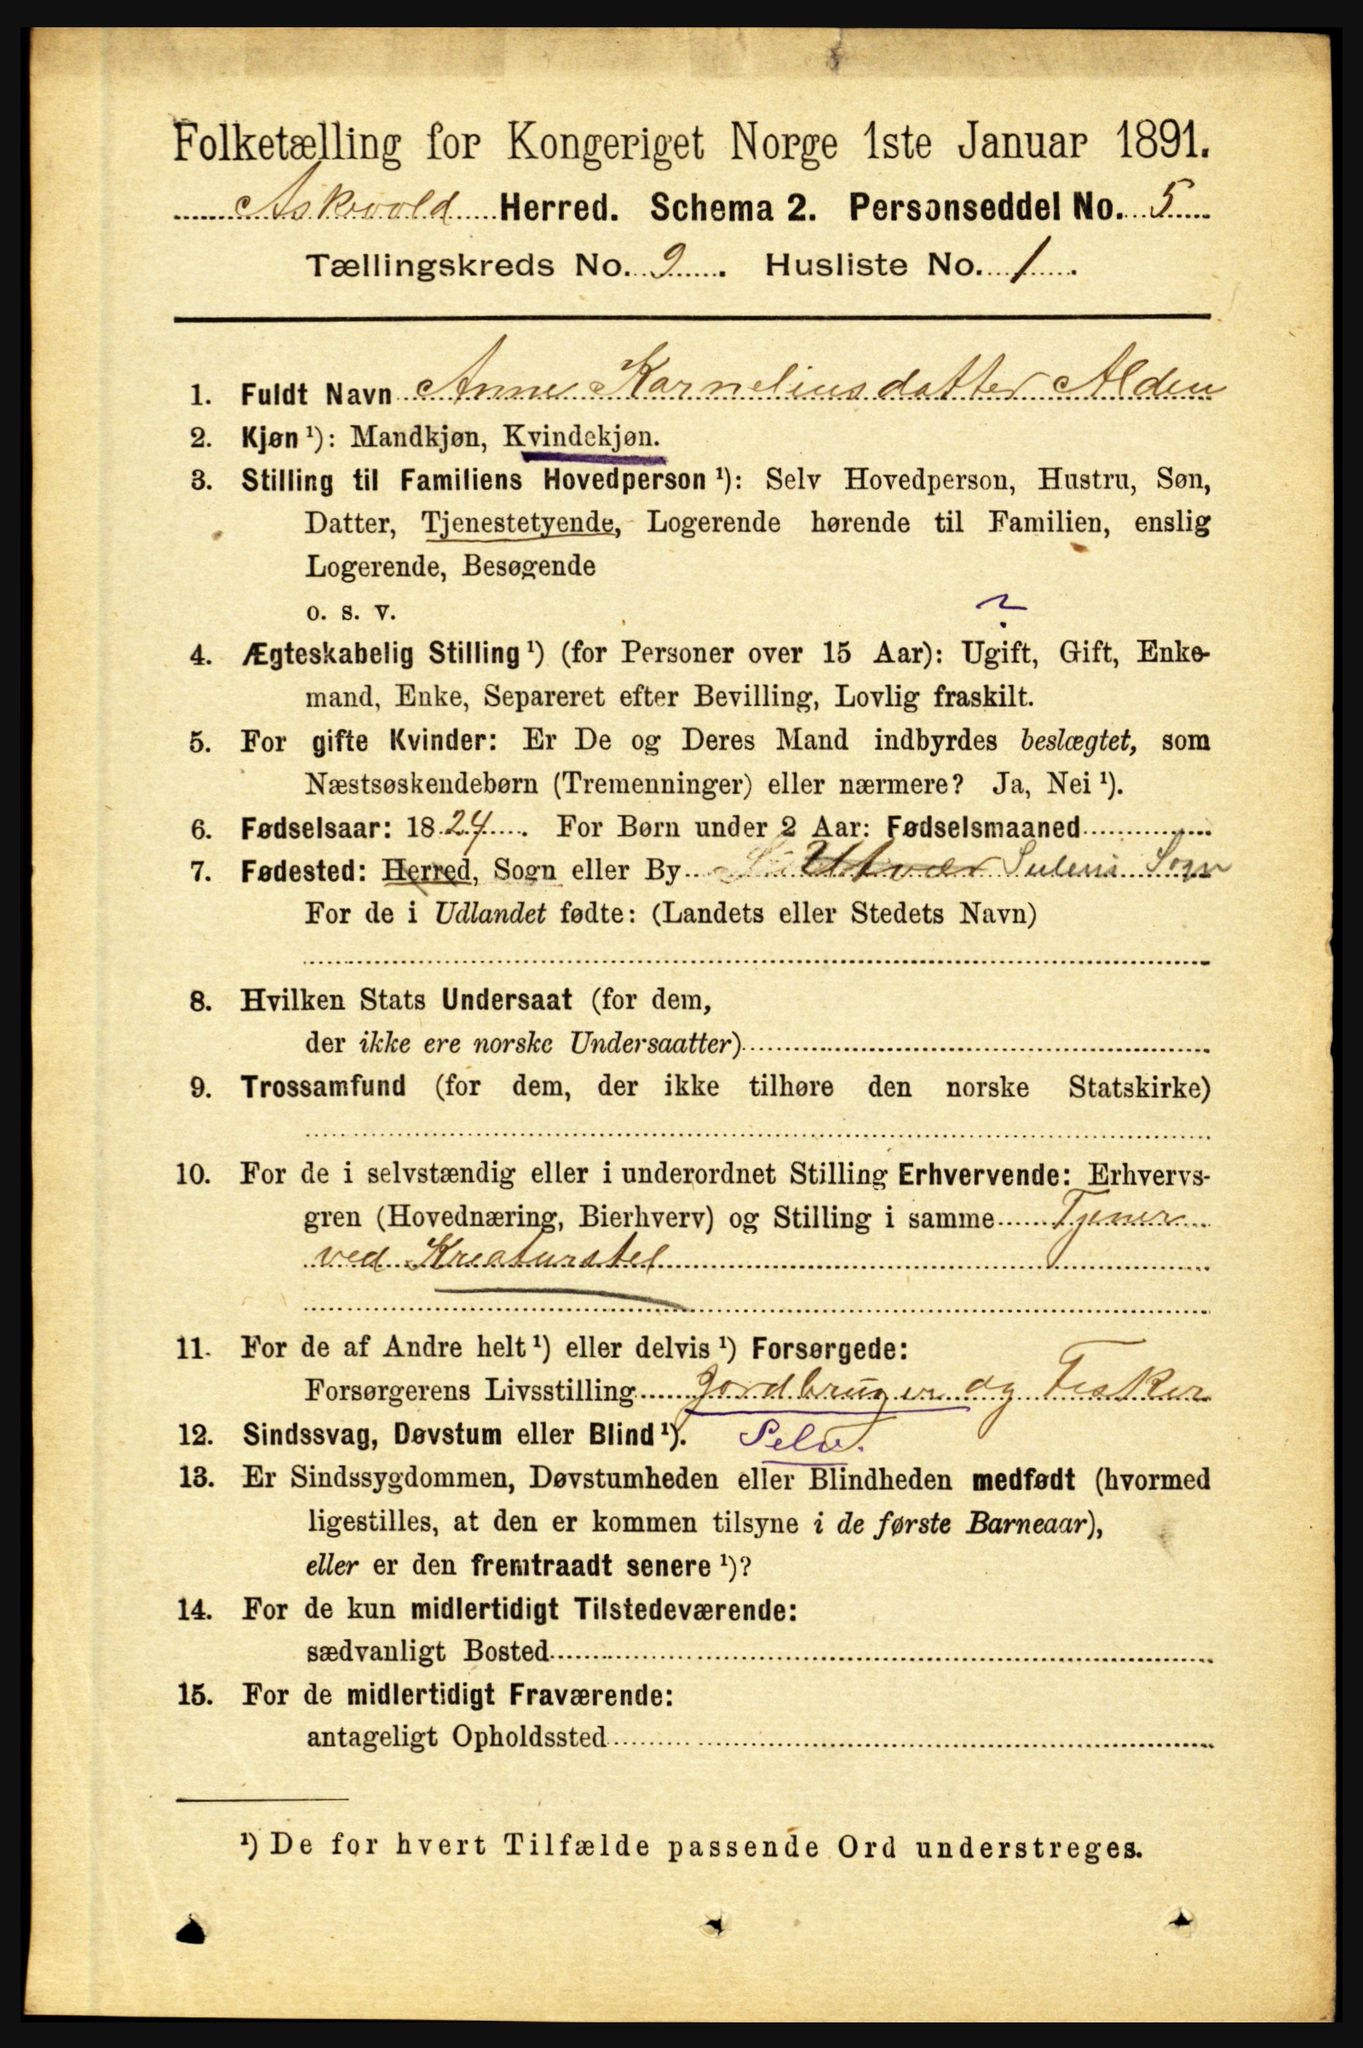 Folketælling for Kongeriget Norge 1ste Januar 1891.
Askevold Herred. Schema 2. Personseddel No. 5
Tællingskreds No. 9. Husliste No. 1.
1. Fuldt Navn Anne Korneliusdatter Alden
2. Kjøn ¹): Mandkjøn, Kvindekjøn.
3. Stilling til Familiens Hovedperson ¹): Selv Hovedperson, Hustru, Søn,
Datter, Tjenestetyende, Logerende hørende til Familien, enslig
Logerende, Besøgende
o. s. v.
?
4. Ægteskabelig Stilling ¹) (for Personer over 15 Aar): Ugift, Gift, Enke-
mand, Enke, Separeret efter Bevilling, Lovlig fraskilt.
5. For gifte Kvinder: Er De og Deres Mand indbyrdes beslægtet, som
Næstsøskendebørn (Tremenninger) eller nærmere? Ja, Nei ¹).
6. Fødselsaar: 1824. For Børn under 2 Aar: Fødselsmaaned
7. Fødested: Herred, Sogn eller By Utvær Sulens Sogn
For de i Udlandet fødte: (Landets eller Stedets Navn)
8. Hvilken Stats Undersaat (for dem,
der ikke ere norske Undersaatter)
9. Trossamfund (for dem, der ikke tilhøre den norske Statskirke)
10. For de i selvstændig eller i underordnet Stilling Erhvervende: Erhvervs-
gren (Hovednæring, Bierhverv) og Stilling i samme Tjener
ved Kreaturstel
11. For de af Andre helt ¹) eller delvis ¹) Forsørgede:
Forsørgerens Livsstilling Jordbruger og Fisker
12. Sindssvag, Døvstum eller Blind ¹). Selv.
13. Er Sindssygdommen, Døvstumheden eller Blindheden medfødt (hvormed
ligestilles, at den er kommen tilsyne i de første Barneaar),
eller er den fremtraadt senere ¹)?
14. For de kun midlertidigt Tilstedeværende:
sædvanligt Bosted
15. For de midlertidigt Fraværende:
antageligt Opholdssted
¹) De for hvert Tilfælde passende Ord understreges.